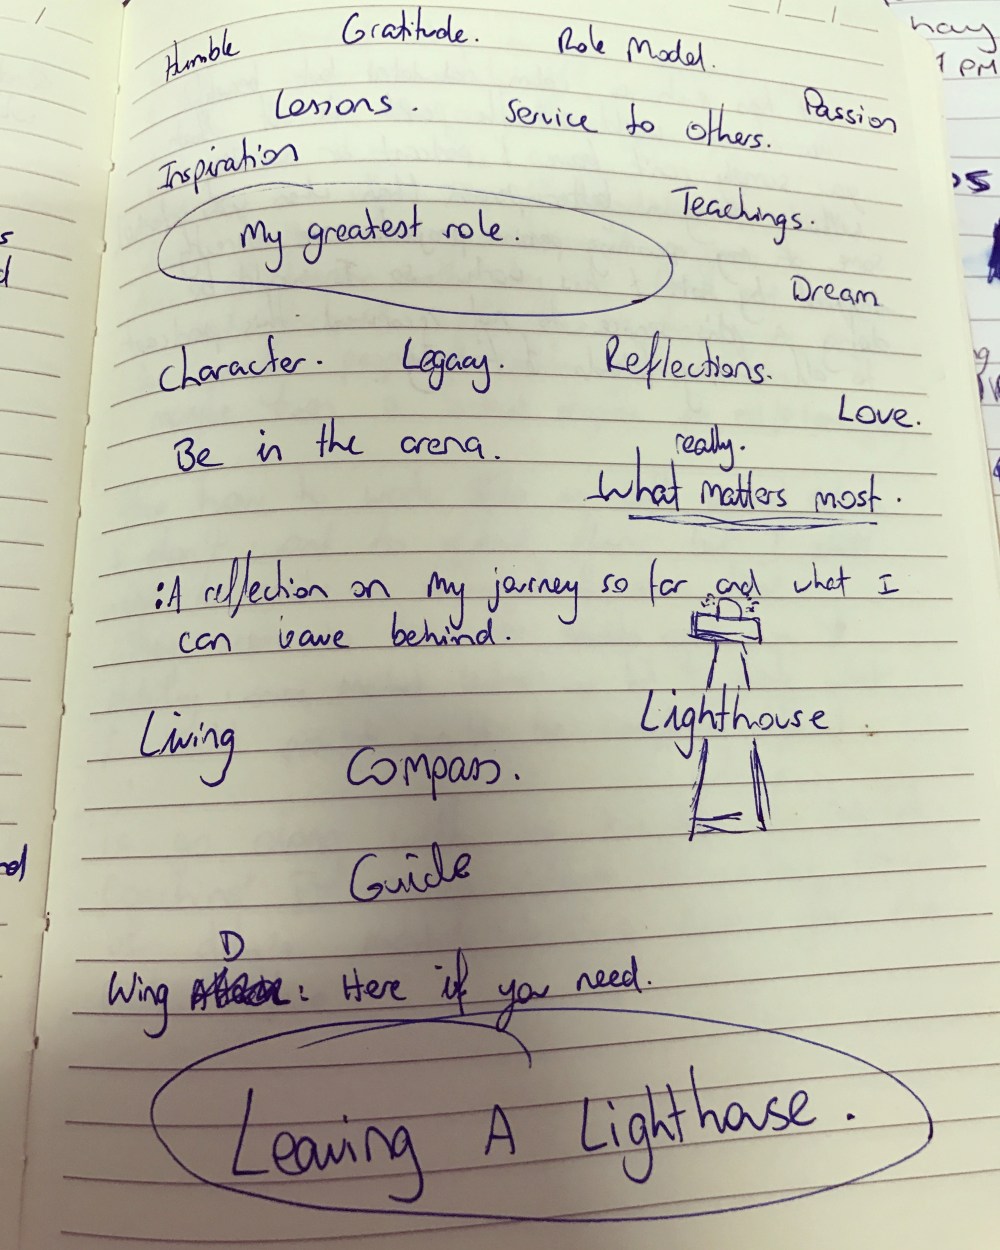 Humble Gratitude. Role Model.
Lessons. Service to others. Passion
Inspiration
My greatest role. Teachings.
Dream
Character. Legacy. Reflections.
Love.
Be in the arena. really.
What matters most.
: A reflection on my journey so far and what I
can leave behind.
Living Lighthouse
Compass.
Guide
D
Wing : Here if you need.
Leaving A Lighthouse.
hay
PM